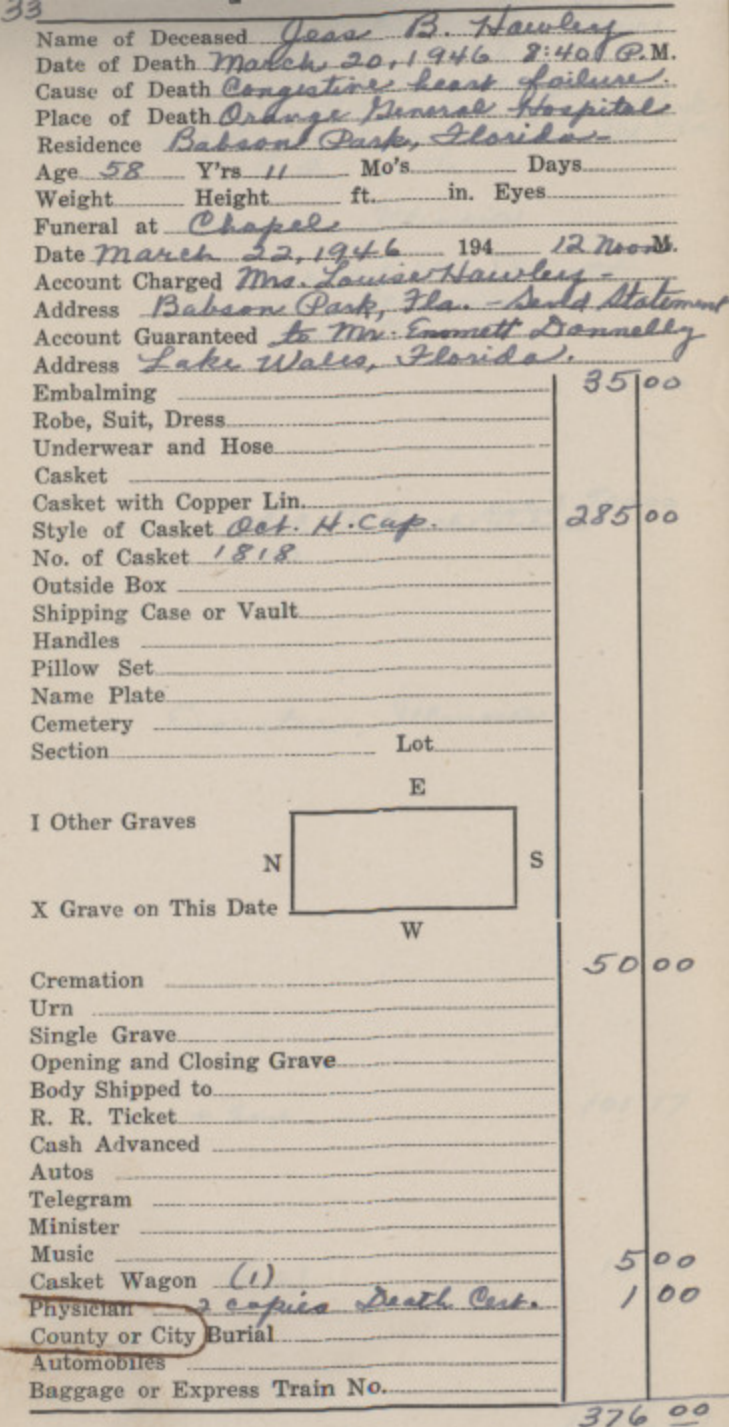 33
Name of Deceased Jess B. Hawley
Date of Death March 20, 1946 8:40 P.M.
Cause of Death Congestive heart failure.
Place of Death Orange General Hospital
Residence Babson Park, Florida-
Age 58 Y'rs 11 Mo's Days
Weight Height ft. in. Eyes
Funeral at Chapel
Date March 22, 1946 194 12 Noon M.
Account Charged Mrs. Louise Hawley -
Address Babson Park, Fla. - Send Statement
Account Guaranteed to Mr. Emmett Donnelly
Address Lake Wales, Florida.
Embalming 35 00
Robe, Suit, Dress
Underwear and Hose
Casket
Casket with Copper Lin.
Style of Casket Oct. H. Cap. 285 00
No. of Casket 1818
Outside Box
Shipping Case or Vault
Handles
Pillow Set
Name Plate
Cemetery
Section Lot
E
I Other Graves
N S
X Grave on This Date
W
Cremation 50 00
Urn
Single Grave
Opening and Closing Grave
Body Shipped to
R. R. Ticket
Cash Advanced
Autos
Telegram
Minister
Music
Casket Wagon (1) 5 00
Physician 2 copies Death Cert. 1 00
County or City Burial
Automobiles
Baggage or Express Train No.
376 00